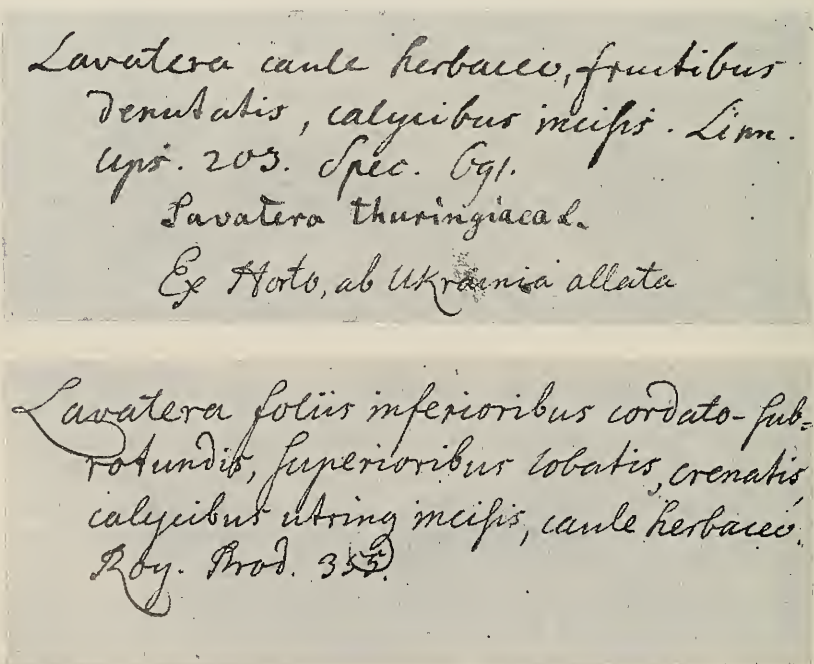 Lavatera caule herbaceo, fructibus
denutatis, calycibus incisis. Linn.
Ups. 203. Spec. 691.
Lavatera thuringiaca L.
Ex Horto, ab Ukrainia allata
Lavatera foliis inferioribus cordato-sub=
rotundis, superioribus lobatis, crenatis,
calycibus utrinq incisis, caule herbaceo.
Roy. Prod. 355.